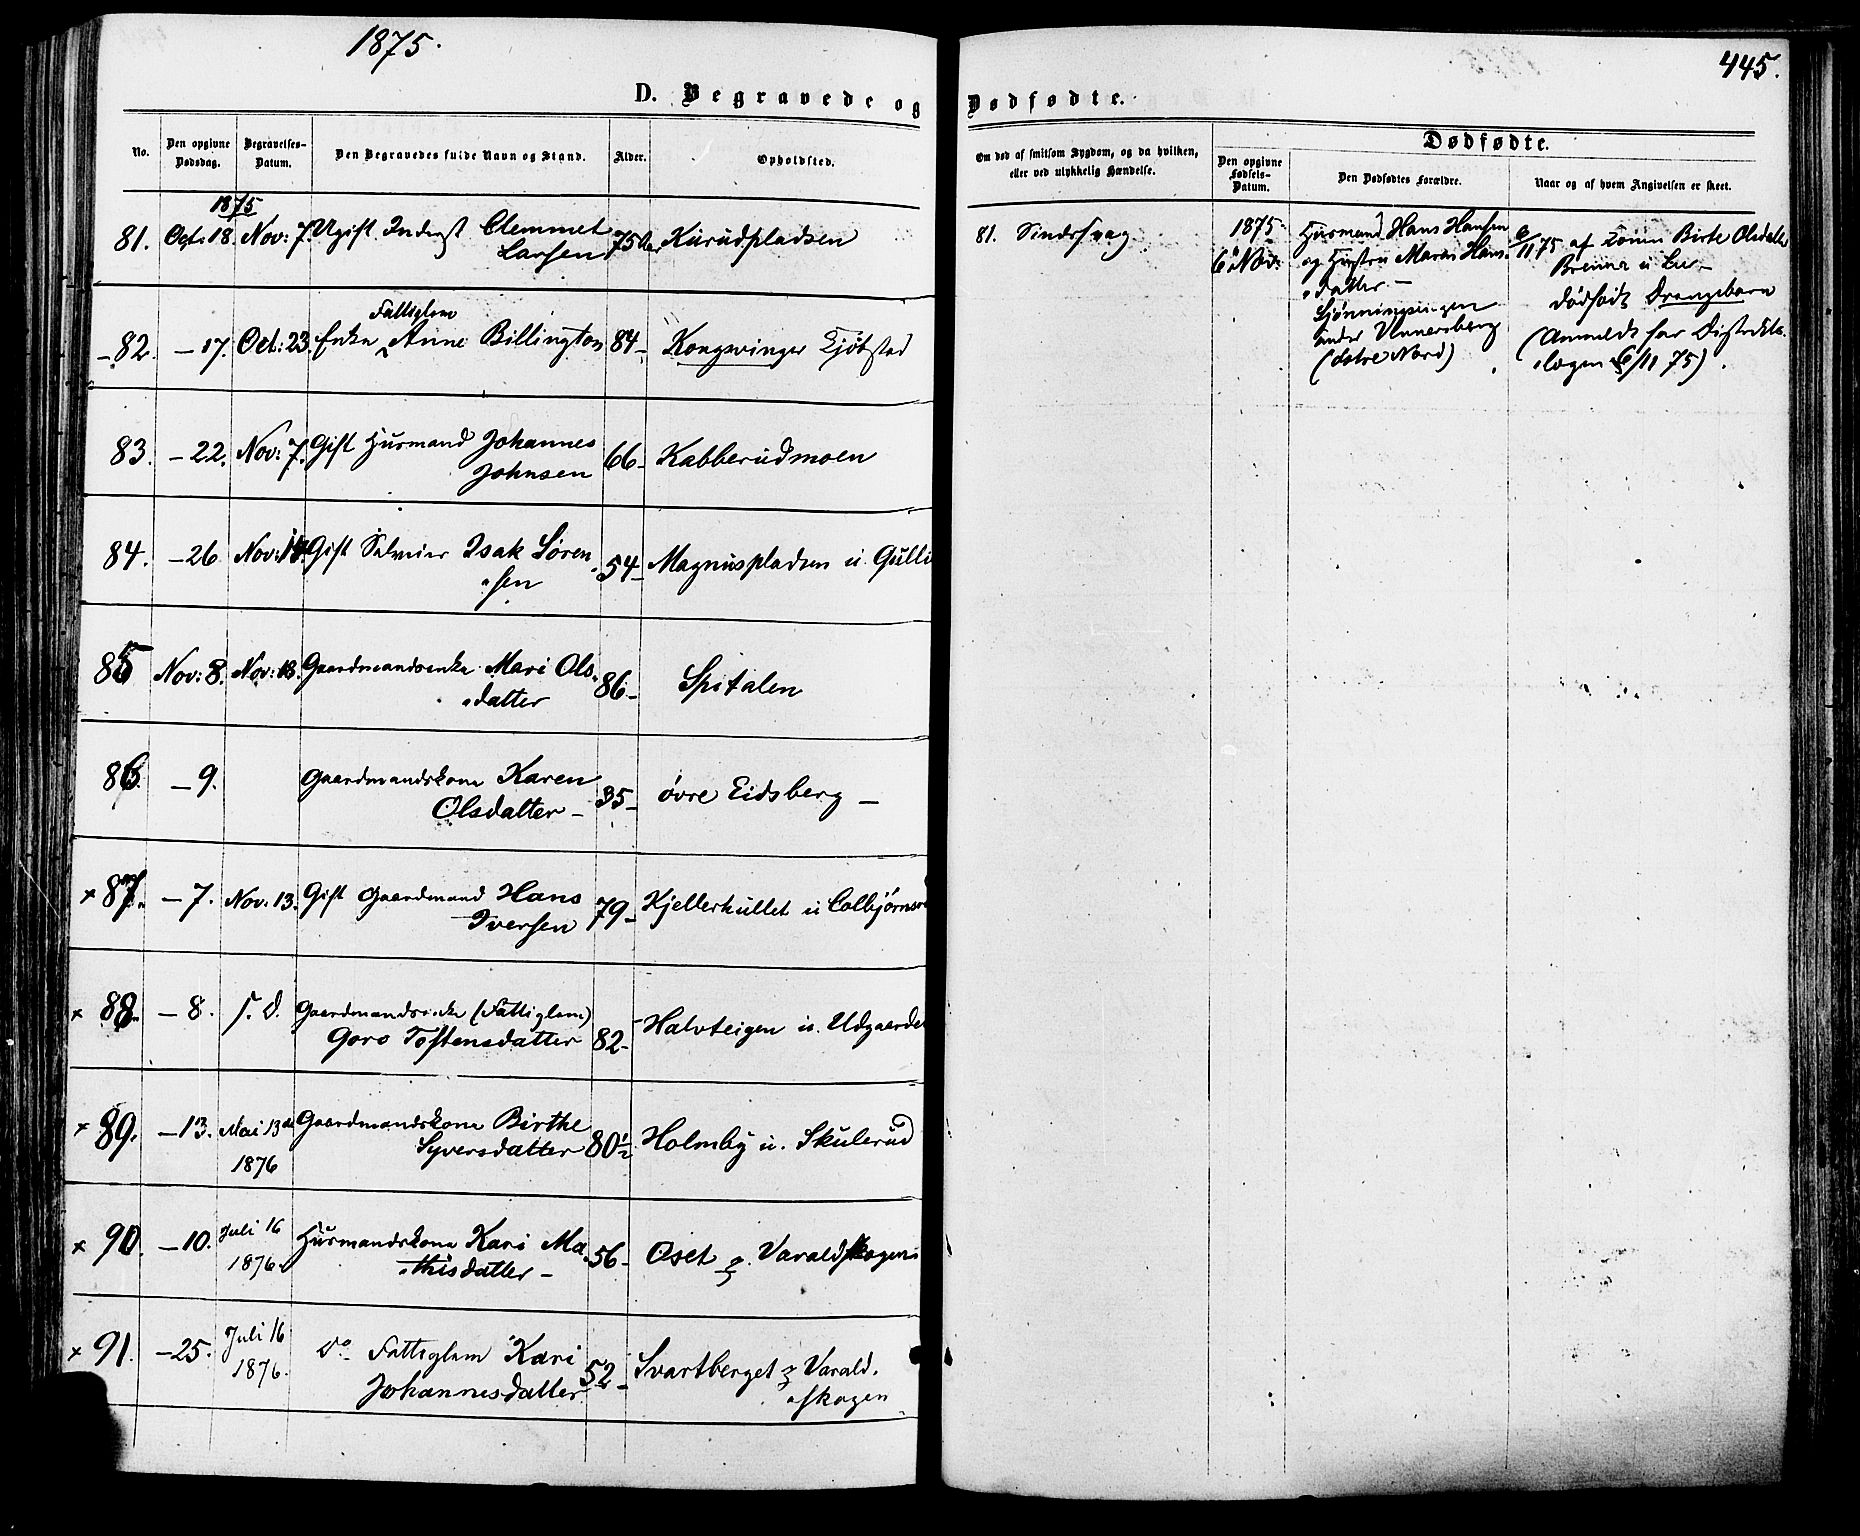 1875.
445.
D. Begravede og Dødfødte.
No.
Den opgivne Dødsdag.
Begravelses-Datum.
Den Begravedes fulde Navn og Stand.
Alder.
Opholdsted.
Om død af smitsom Sygdom, og da hvilken, eller ved ulykkelig Hændelse.
Dødfødte.
Den opgivne Fødsels-Datum.
Den Dødfødtes Forældre.
Naar og af hvem Angivelsen er skeet.
1875
81. Oct: 18. Nov: 7. Ugift Inderst Clemmet
Larsen 75 Kurudpladsen
Fattiglem
82. — 17. Oct: 23. Enke Anne Billington 84 – Kongsvinger Kjøbsted
83. — 22. Nov: 7. Gift Husmand Johannes
Johnsen 66 – Kabberudmoen
84. — 26 Nov: Gift Selveier Isak Søren
sen 54 – Magnuspladsen u. Gulli
85 Nov: 8. Nov: 18. Gaardmandsenke Mari Ols
datter 86 – Spitalen
86. — 9. Gaardmandskone Karen
Olsdatter – 35 – øvre Eidsberg –
× 87. — 7. Nov: 13. Gift Gaardmand Hans
Iversen 79 – Kjellerhullet u Colbjørnsr
× 88. — 8. s. d. Gaardmandsenke (Fattiglem)
Goro Tostensdatter 82 – Halvteigen u. Udgaarde
× 89. — 13. Mai 13de
1876 Gaardmandskone Birthe
Syversdatter 80½ Holmby u. Skulerud
× 90. — 10. Juli 16
1876. Husmandskone Kari Ma
thisdatter – 56 – Oset Varaldskogen
× 91. — 25. Juli 16
1876. Do Fattiglem Kari
Johannesdatter 52 – Svartberget Varald
skogen
81. Sindssvag
1875
6 Nov:
Husmand Hans Hansen
og Hustru Maren Hans
datter –
under Unnersberg
(østre Nord)
6/11 75 af Konen Birte Olsdatter
dødfødt Drengebarn
(Anmeldt for Distrikts
lægen 6/11 75).